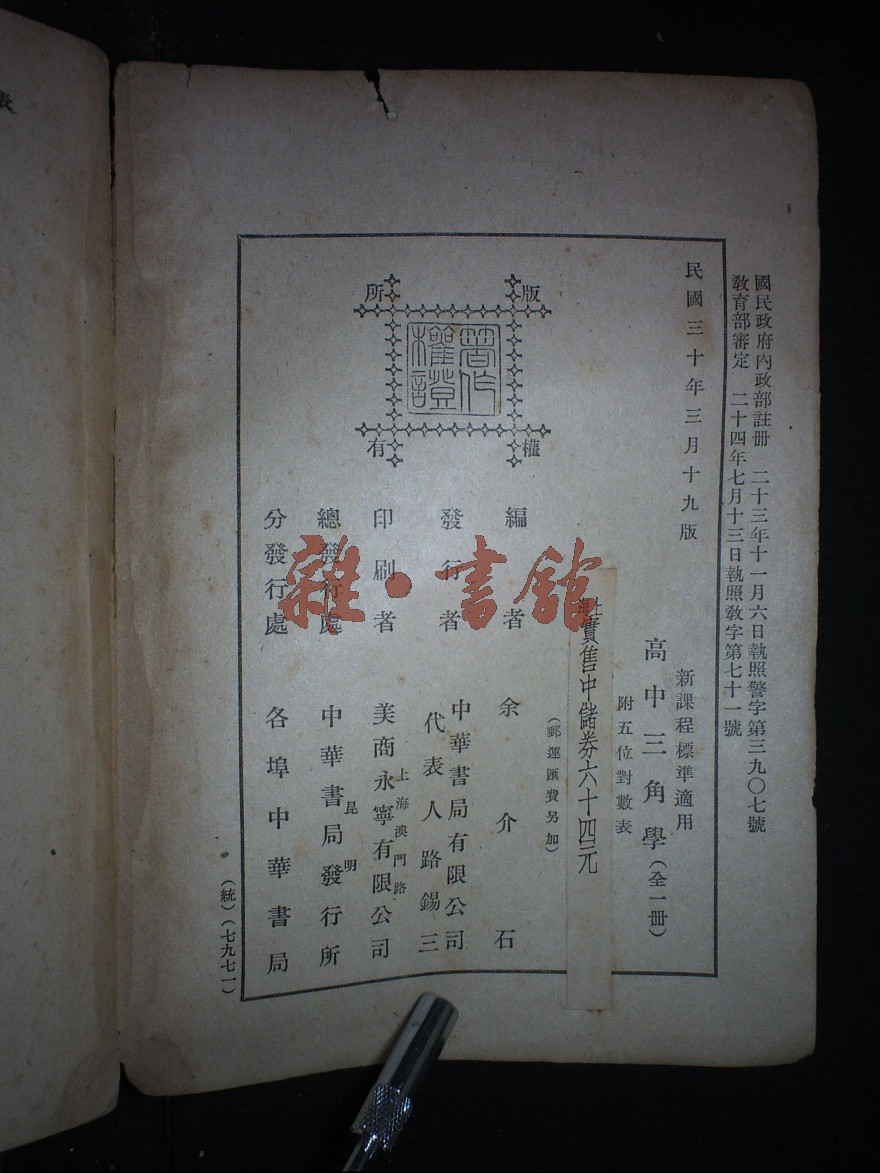 國民政府內政部註冊 二十三年十一月六日執照警字第三九〇七號
教育部審定 二十四年七月十三日執照教字第七十一號
民國三十年三月十九版
新課程標準適用
高中三角學(全一冊)
附五位對數表
實售中儲券六十四元
(郵運匯費另加)
版權所有
著作權證
編者 余介石
發行者 中華書局有限公司
代表人路錫三
印刷者 上海澳門路
美商永寧有限公司
總發行處 昆明
中華書局發行所
分發行處 各埠中華書局
(統)(七九七一)
雜·書館
表